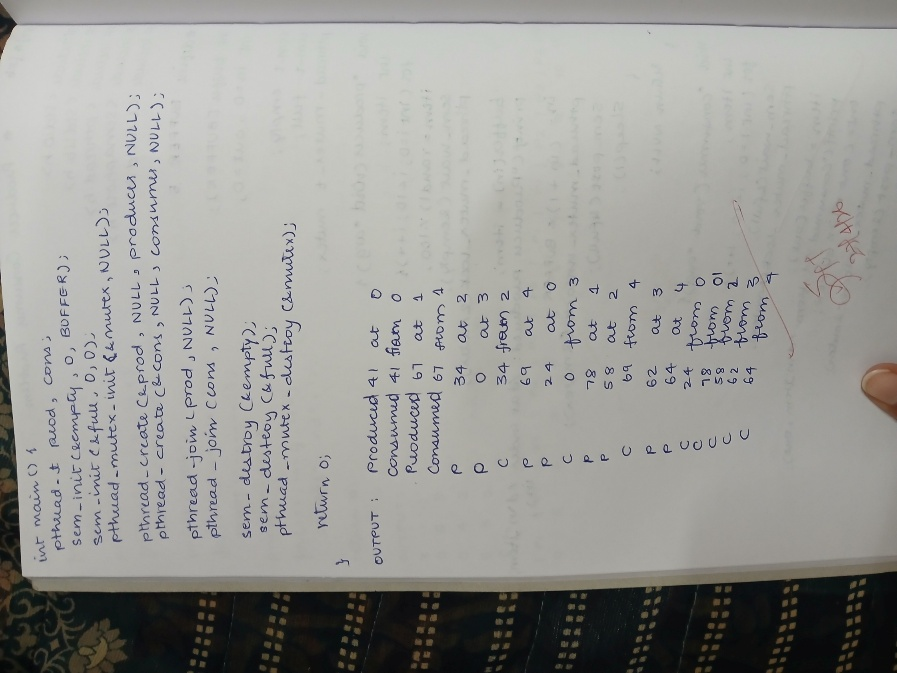 int main() {
pthread_t prod, cons;
sem_init (&empty, 0, BUFFER);
sem_init (&full, 0, 0);
pthread_mutex_init (&mutex, NULL);
pthread_create (&prod, NULL, producer, NULL);
pthread_create (&cons, NULL, consumer, NULL);
pthread_join (prod, NULL);
pthread_join (cons, NULL);
sem_destroy (&empty);
sem_destroy (&full);
pthread_mutex_destroy (&mutex);
return 0;
}
OUTPUT : Produced 41 at 0
Consumed 41 from 0
Produced 67 at 1
Consumed 67 from 1
P 34 at 2
P 0 at 3
C 34 from 2
P 69 at 4
P 24 at 0
C 0 from 3
P 78 at 1
P 58 at 2
C 69 from 4
P 62 at 3
P 64 at 4
C 24 from 0
C 78 from 01
C 58 from 2
C 62 from 3
C 64 from 4